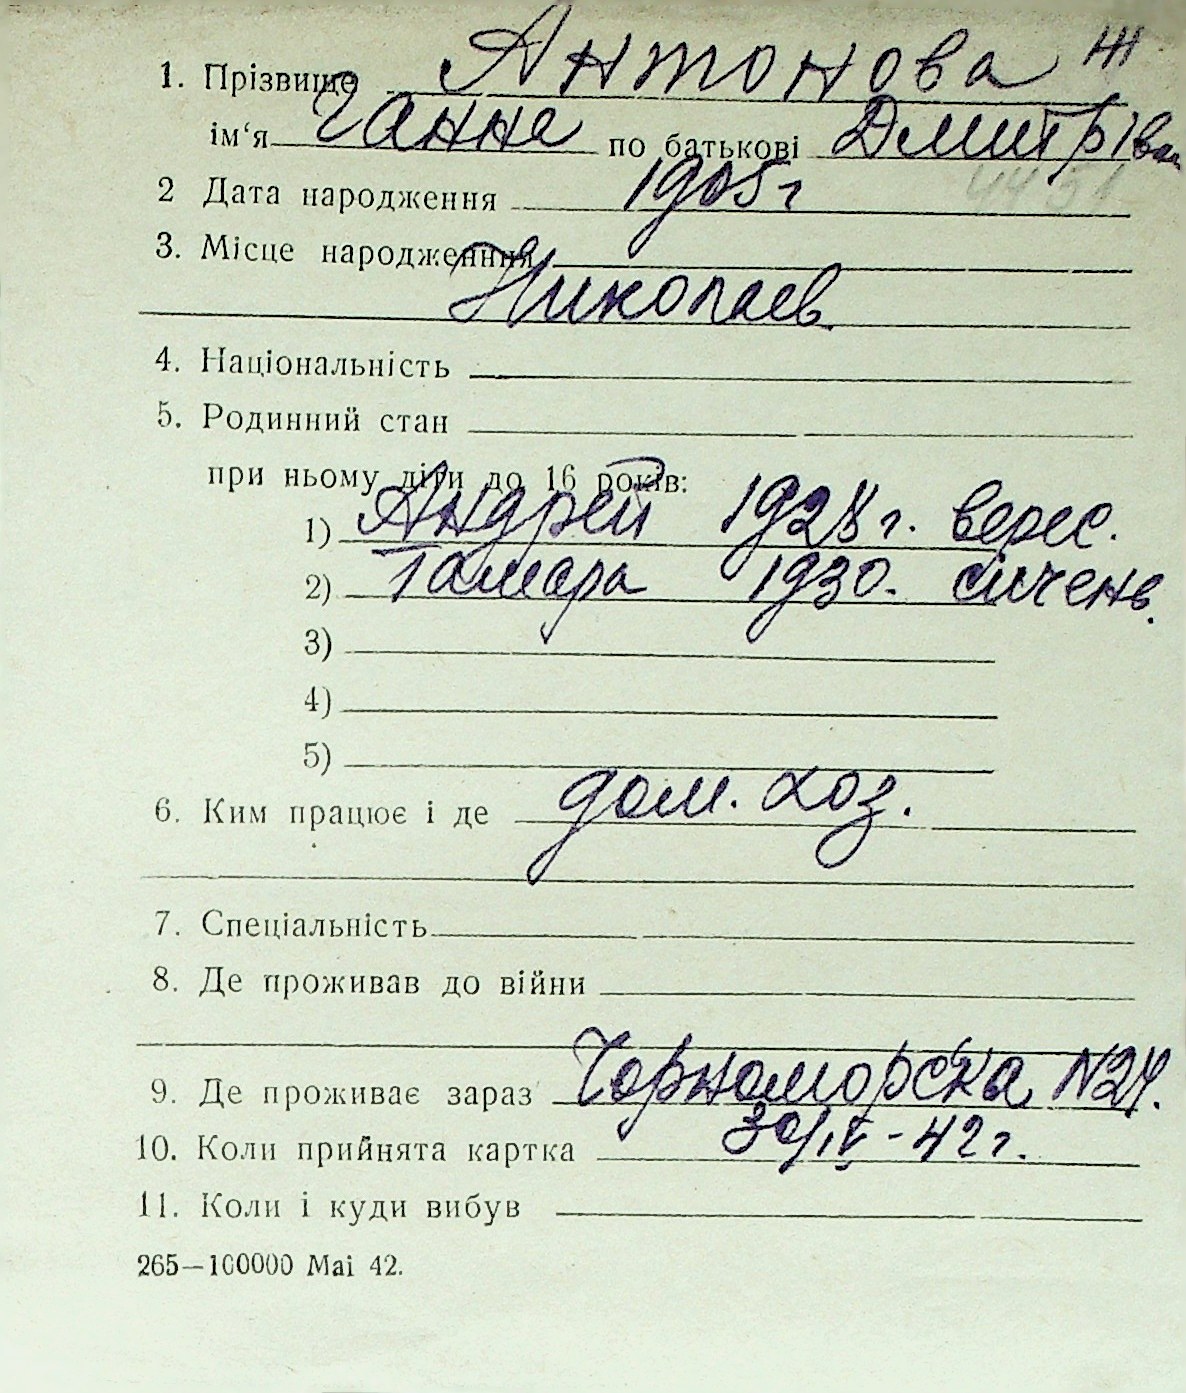 1. Прізвище Антонова Ж
ім‘я Ганна по батькові Дмитрівн
2 Дата народження 1905 г
3. Місце народженння
Николаев.
4. Національність
5. Родинний стан
при ньому діти до 16 років:
1) Андрей 1928 г. верес.
2) Тамара 1930. січень.
3)
4)
5)
6. Ким працює і де дом. хоз.
7. Спеціальність
8. Де проживав до війни
9. Де проживає зараз Чорноморска N24.
10. Коли прийнята картка 30/IV - 42 г.
11. Коли і куди вибув
265—100000 Mai 42.